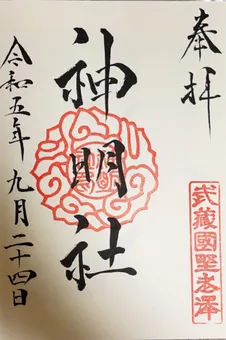 奉拝
武蔵國野老澤
神明社
令和五年九月二十四日